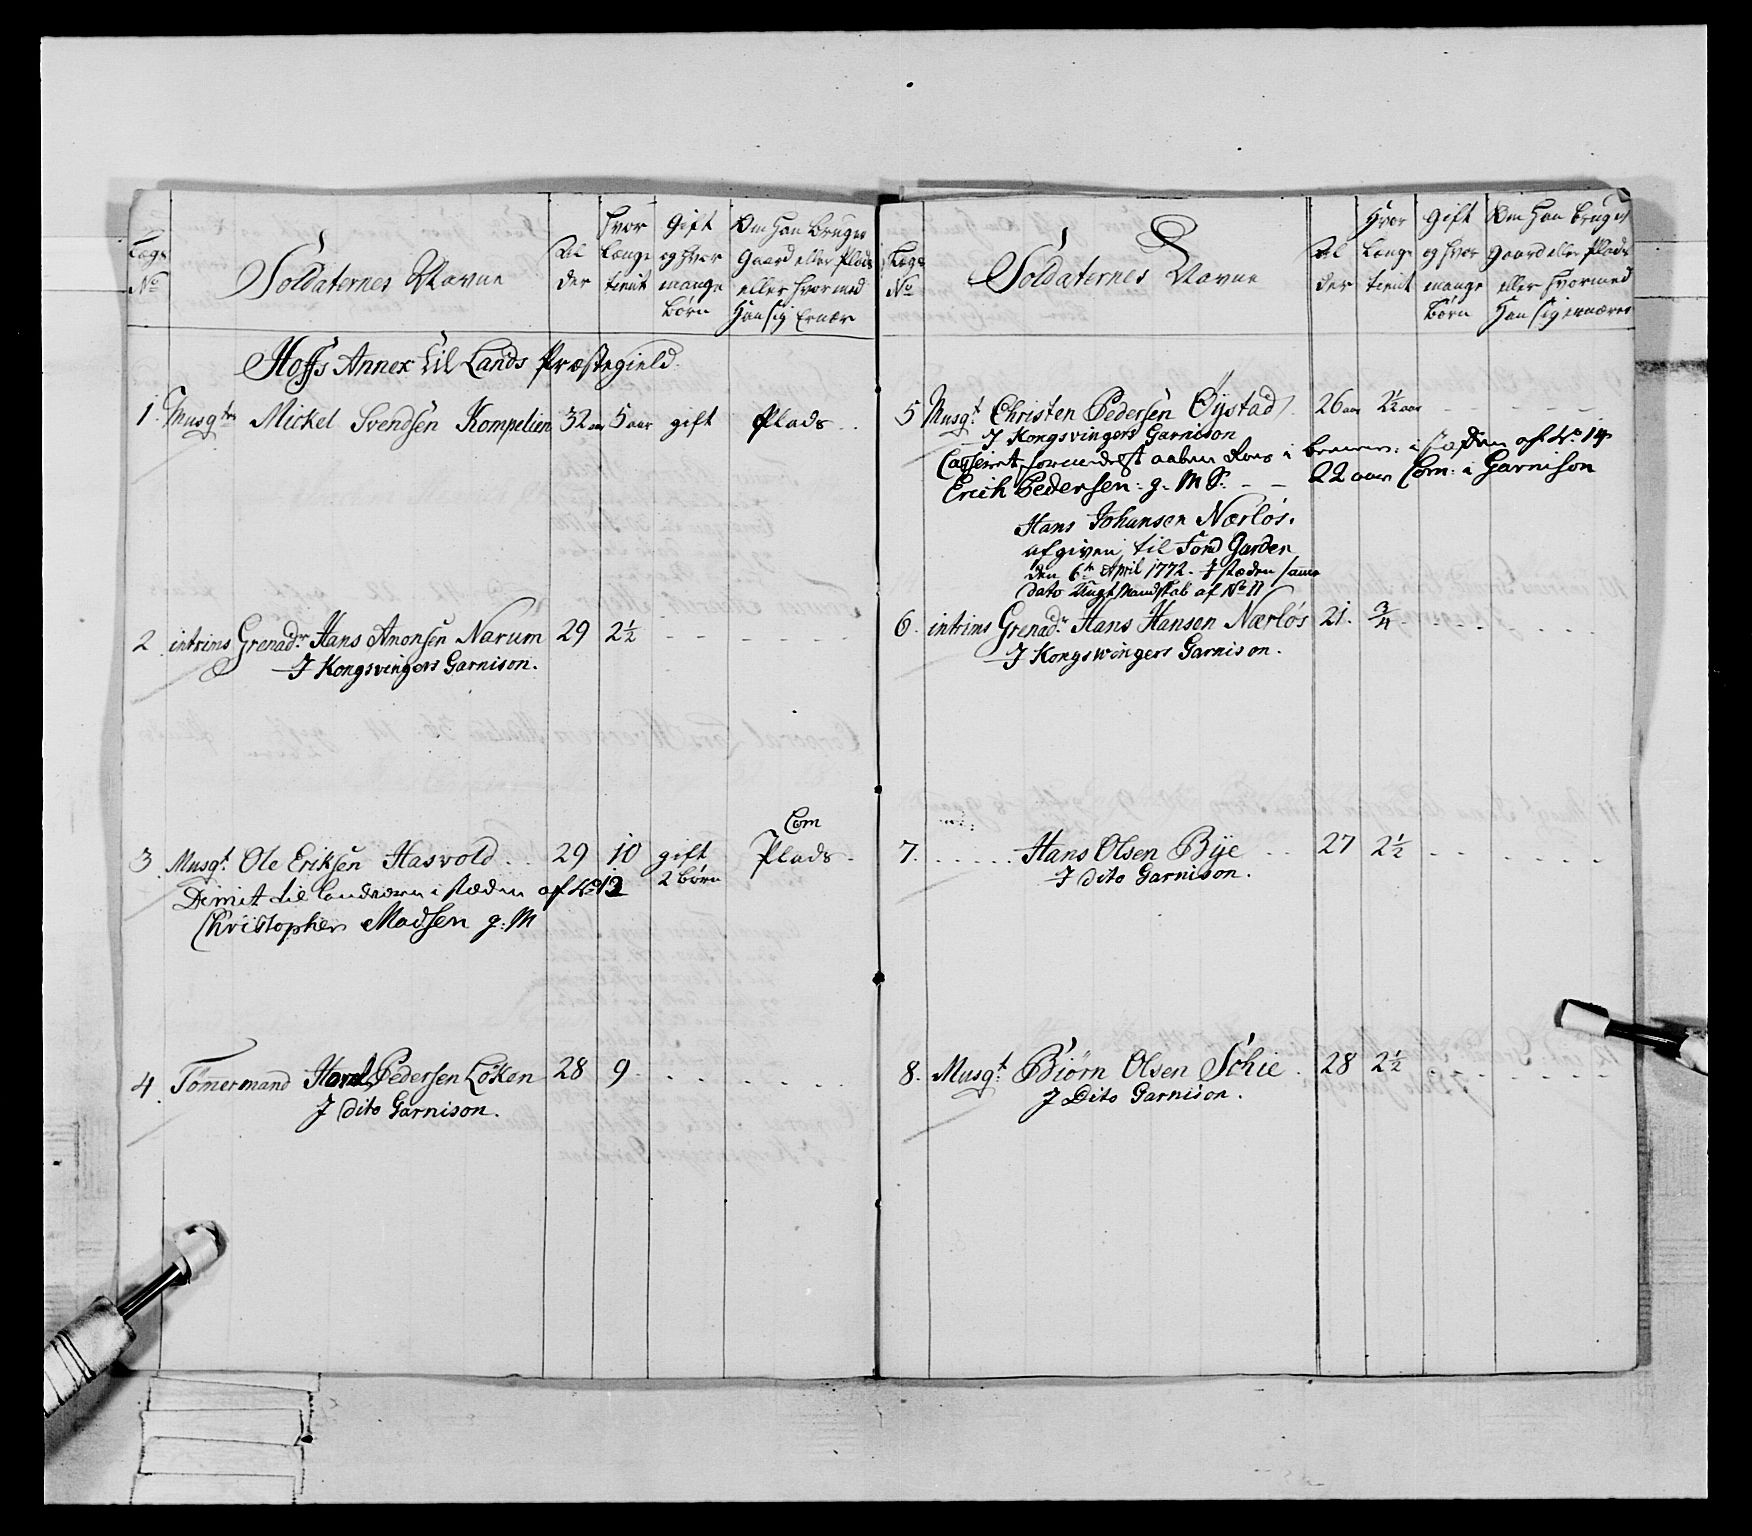 Lægs No
Soldaternes Navne
Al der
Hvor Længe tient
Gift og hvor mange Børn
Om han Bruger Gaard eller Plads eller hvormed Han sig Ernær
Hoffs Annex til Lands Præstegield
1. Musgtr Mickel Svendsen Kompelien 32 aar 5 aar gift Plads
2. intrims Grenadr Hans Amonsen Narum 29 2½
I Kongsvingers Garnison.
Com
3. Musgt. Ole Eriksen Hasvold 29 10 gift Plads
2 børn
Dimit til Landværn i stæden af No 12
Christopher Madsen g: M
4. Tömermand Pedersen Löken 28 9
I dito Garnison.
Lægs No
Soldaternes Navne
Al der
Hvor Længe tient
Gift og hvor mange Børn
Om Han bruger Gaard eller Plads eller hvormed Han sig ernærer
5 Musgt. Christen Pedersen Öystad 26 aar 2½ aar
I Kongsvingers Garnison
Casseret formedelst aaben i i stæden af No 14
Erich Pedersen: g. M S. 22 aar Com: i Garnison
Hans Johansen Nærlös.
afgiven til Ford Garden
den 6te April 1772. I stæden samme
dato Ungt Mandskab af No 11
6. intrims Grenadr. Hans Hansen Nærlös 21. ¾
I Kongswingers Garnison.
7. Hans Olsen Bye 27 2½
I dito Garnison.
8. Musgt. Biörn Olsen Sohie 28 2½
I Dito Garnison.